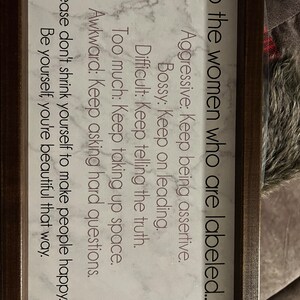 o the women who are labeled
Aggressive: Keep being assertive.
Bossy: Keep on leading.
Difficult: Keep telling the truth.
Too much: Keep taking up space.
Awkward: Keep asking hard questions.
ease don't shrink yourself to make people happy.
Be yourself, you're beautiful that way.